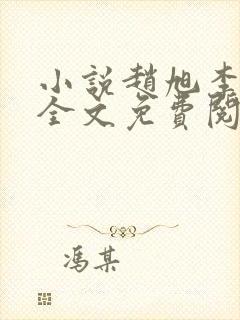 小說趙旭李
全文免費閱
馮某